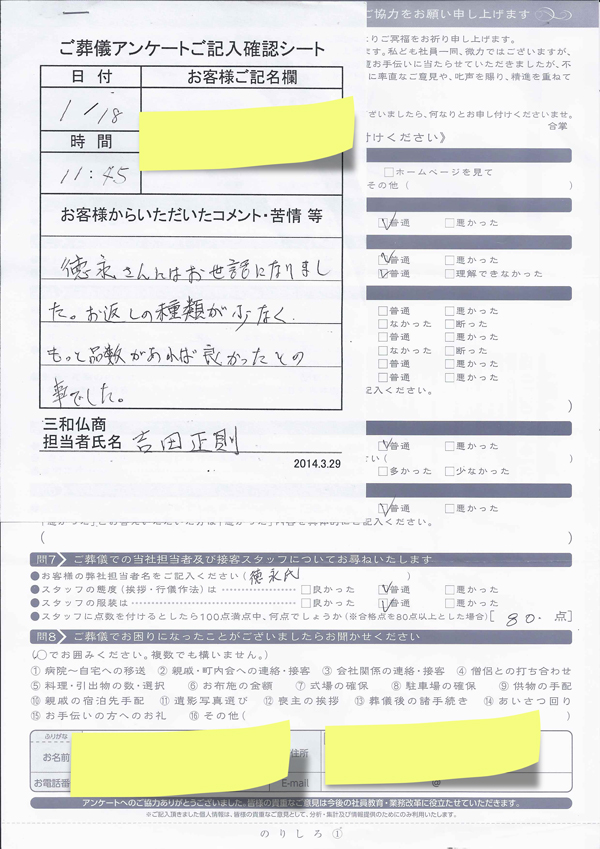 ご協力をお願い申し上げます
ご葬儀アンケートご記入確認シート
日付 お客様ご記名欄
1/18
時間
11:45
お客様からいただいたコメント・苦情 等
徳永さんにはお世話になりまし
た。お返しの種類が少なく
もっと品数があれば良かったとの
事でした。
三和仏商
担当者氏名 吉田正則
2014.3.29
りご冥福をお祈り申し上げます。
ます。私ども社員一同、微力ではございますが、
お手伝いに当たらせていただきましたが、不
に率直なご意見や、叱声を賜り、精進を重ねて
ございましたら、何なりとお申し付けくださいませ。
合掌
付けください》
□ホームページを見て
その他( )
□普通 □悪かった
□普通 □悪かった
□普通 □理解できなかった
□普通 □悪かった
□なかった □断った
□普通 □悪かった
□なかった □断った
□普通 □悪かった
□普通 □悪かった
記入ください。
)
□普通 □悪かった
さい( )
□多かった □少なかった
□普通 □悪かった
( )
問7 ご葬儀での当社担当者及び接客スタッフについてお尋ねいたします
●お客様の弊社担当者名をご記入ください(徳永氏 )
●スタッフの態度(挨拶・行儀作法)は □良かった □普通 □悪かった
●スタッフの服装は □良かった □普通 □悪かった
●スタッフに点数を付けるとしたら100点満点中、何点でしょうか(※合格点を80点以上とした場合)[ 80. 点]
問8 ご葬儀でお困りになったことがございましたらお聞かせください
(○でお囲みください。複数でも構いません。)
①病院~自宅への移送 ②親戚・町内会への連絡・接客 ③会社関係の連絡・接客 ④僧侶との打ち合わせ
⑤料理・引出物の数・選択 ⑥お布施の金額 ⑦式場の確保 ⑧駐車場の確保 ⑨供物の手配
⑩親戚の宿泊先手配 ⑪遺影写真選び ⑫喪主の挨拶 ⑬葬儀後の諸手続き ⑭あいさつ回り
⑮お手伝いの方へのお礼 ⑯その他( )
ふりがな
お名前 住所
お電話番 E-mail @
アンケートへのご協力ありがとうございました。皆様の貴重なご意見は今後の社員教育・業務改革に役立たせていただきます。
※ご記入頂きました個人情報は、皆様の貴重なご意見として、分析・集計及び情報提供のためにのみ利用いたします。
のりしろ①